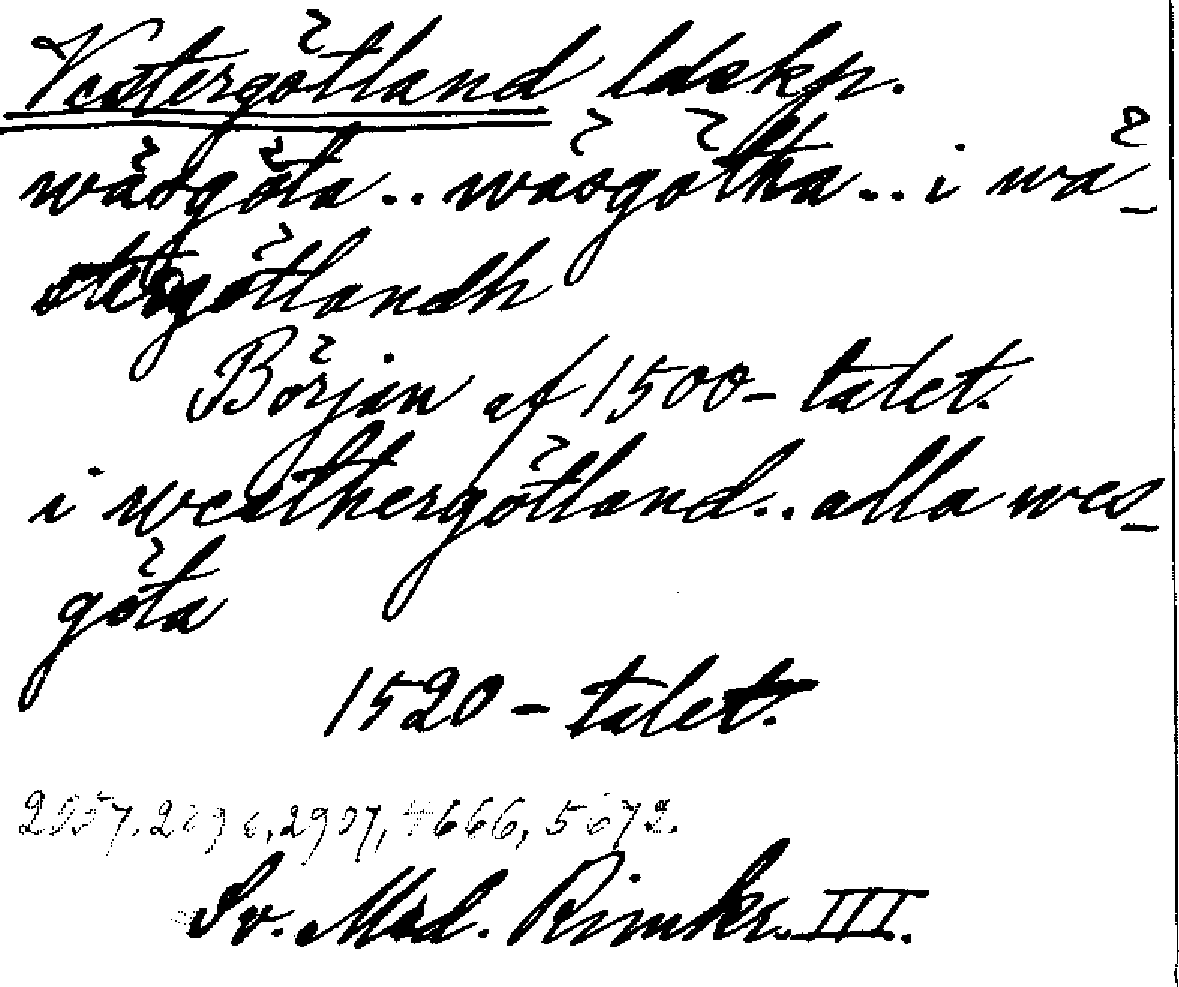 Vestergötland ldskp.
wäsgöta.. wäsgötha.. i wä-
stergötlandh
Början af 1500-talet.
i westhergötland.. alla wes-
göta
1520-talet.
2907, 4666, 5672.
Sv. Med. Rimkr. III.